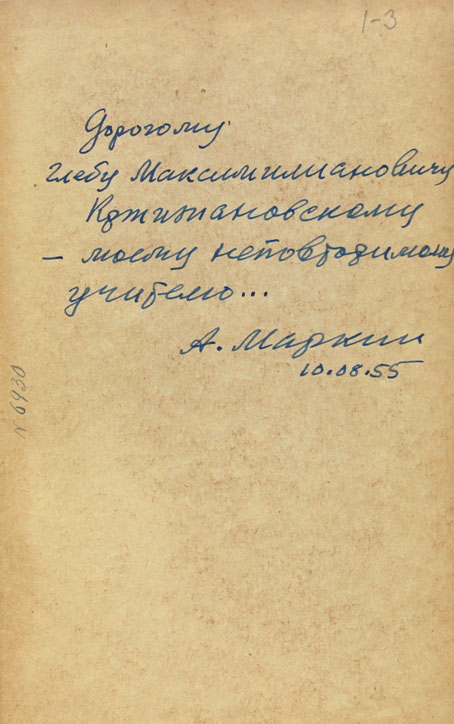 1-3
Дорогому
Глебу Максимилиановичу
Кржижановскому
– моему неповторимому
учителю...
А. Маркин
10.08.55
№ 6930